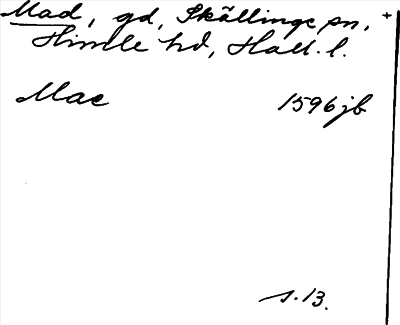 Mad, gd, Skällinge sn, +
Himle hd, Hall. l.
Mae 1596 jb
s. 13.